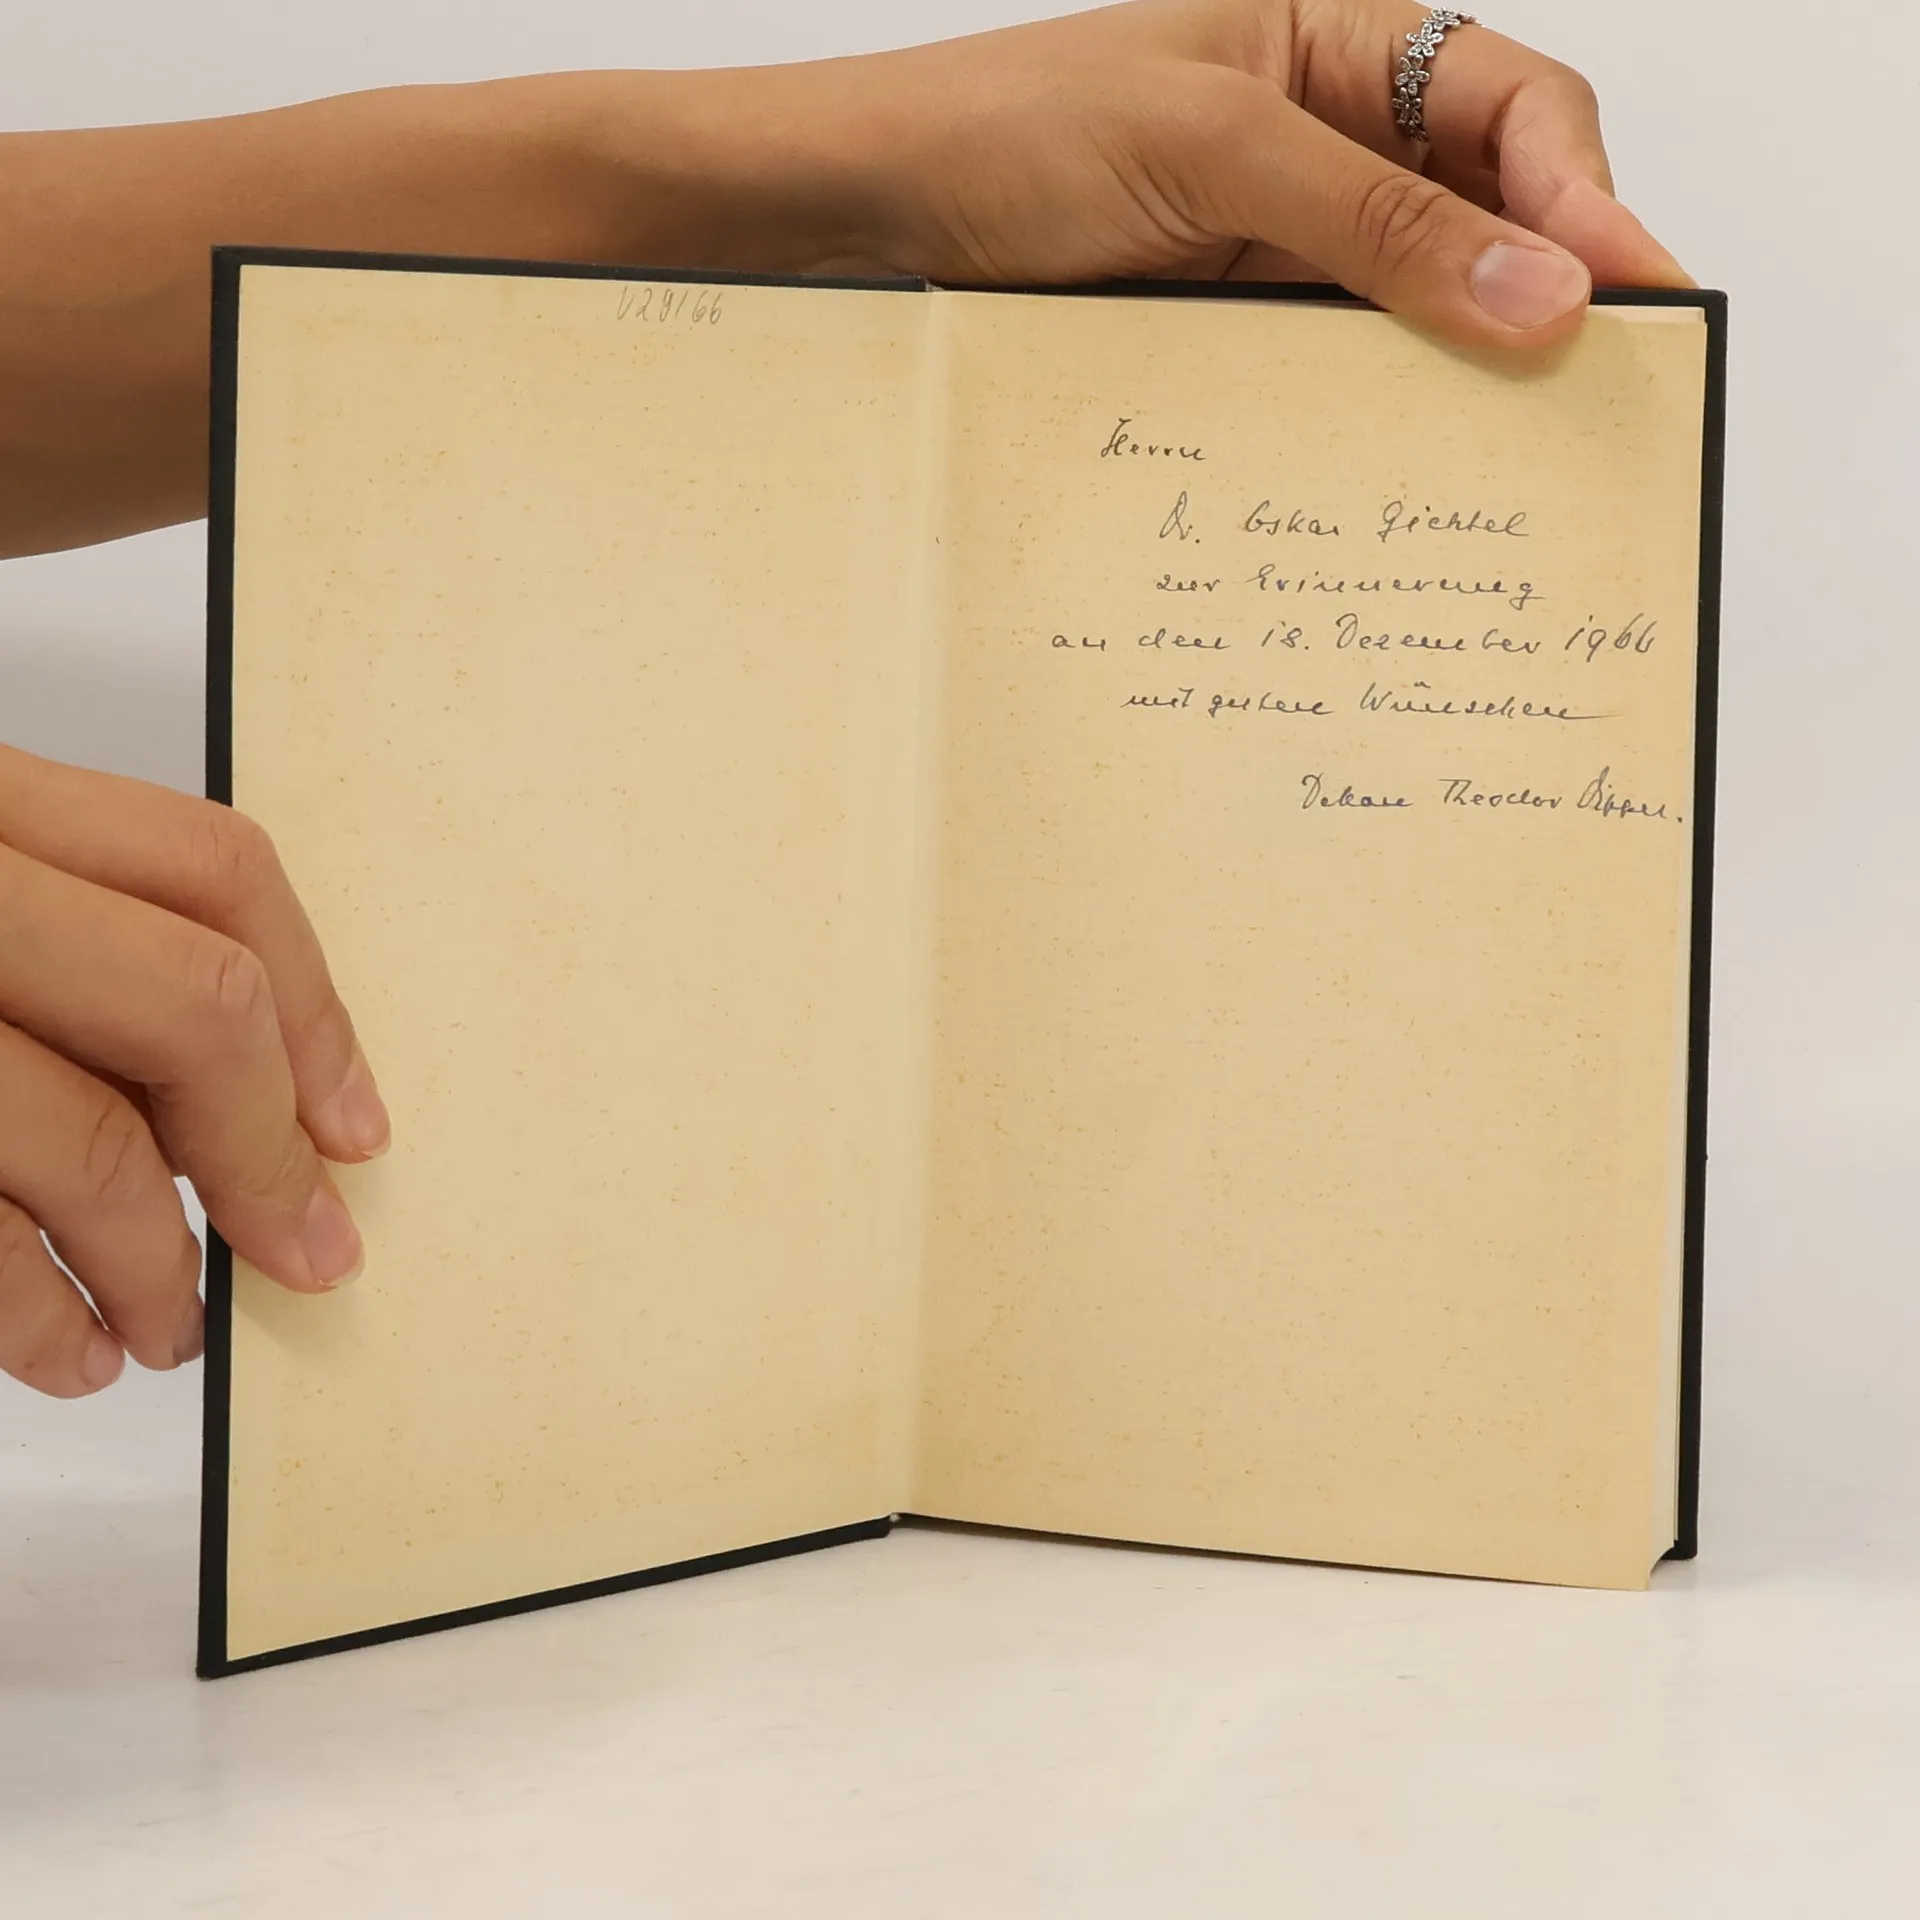 V29/66
Herrn
Dr. Oskar Gichtel
zur Erinnerung
an den 18. Dezember 1966
mit guten Wünschen
Dekan Theodor Dipper.